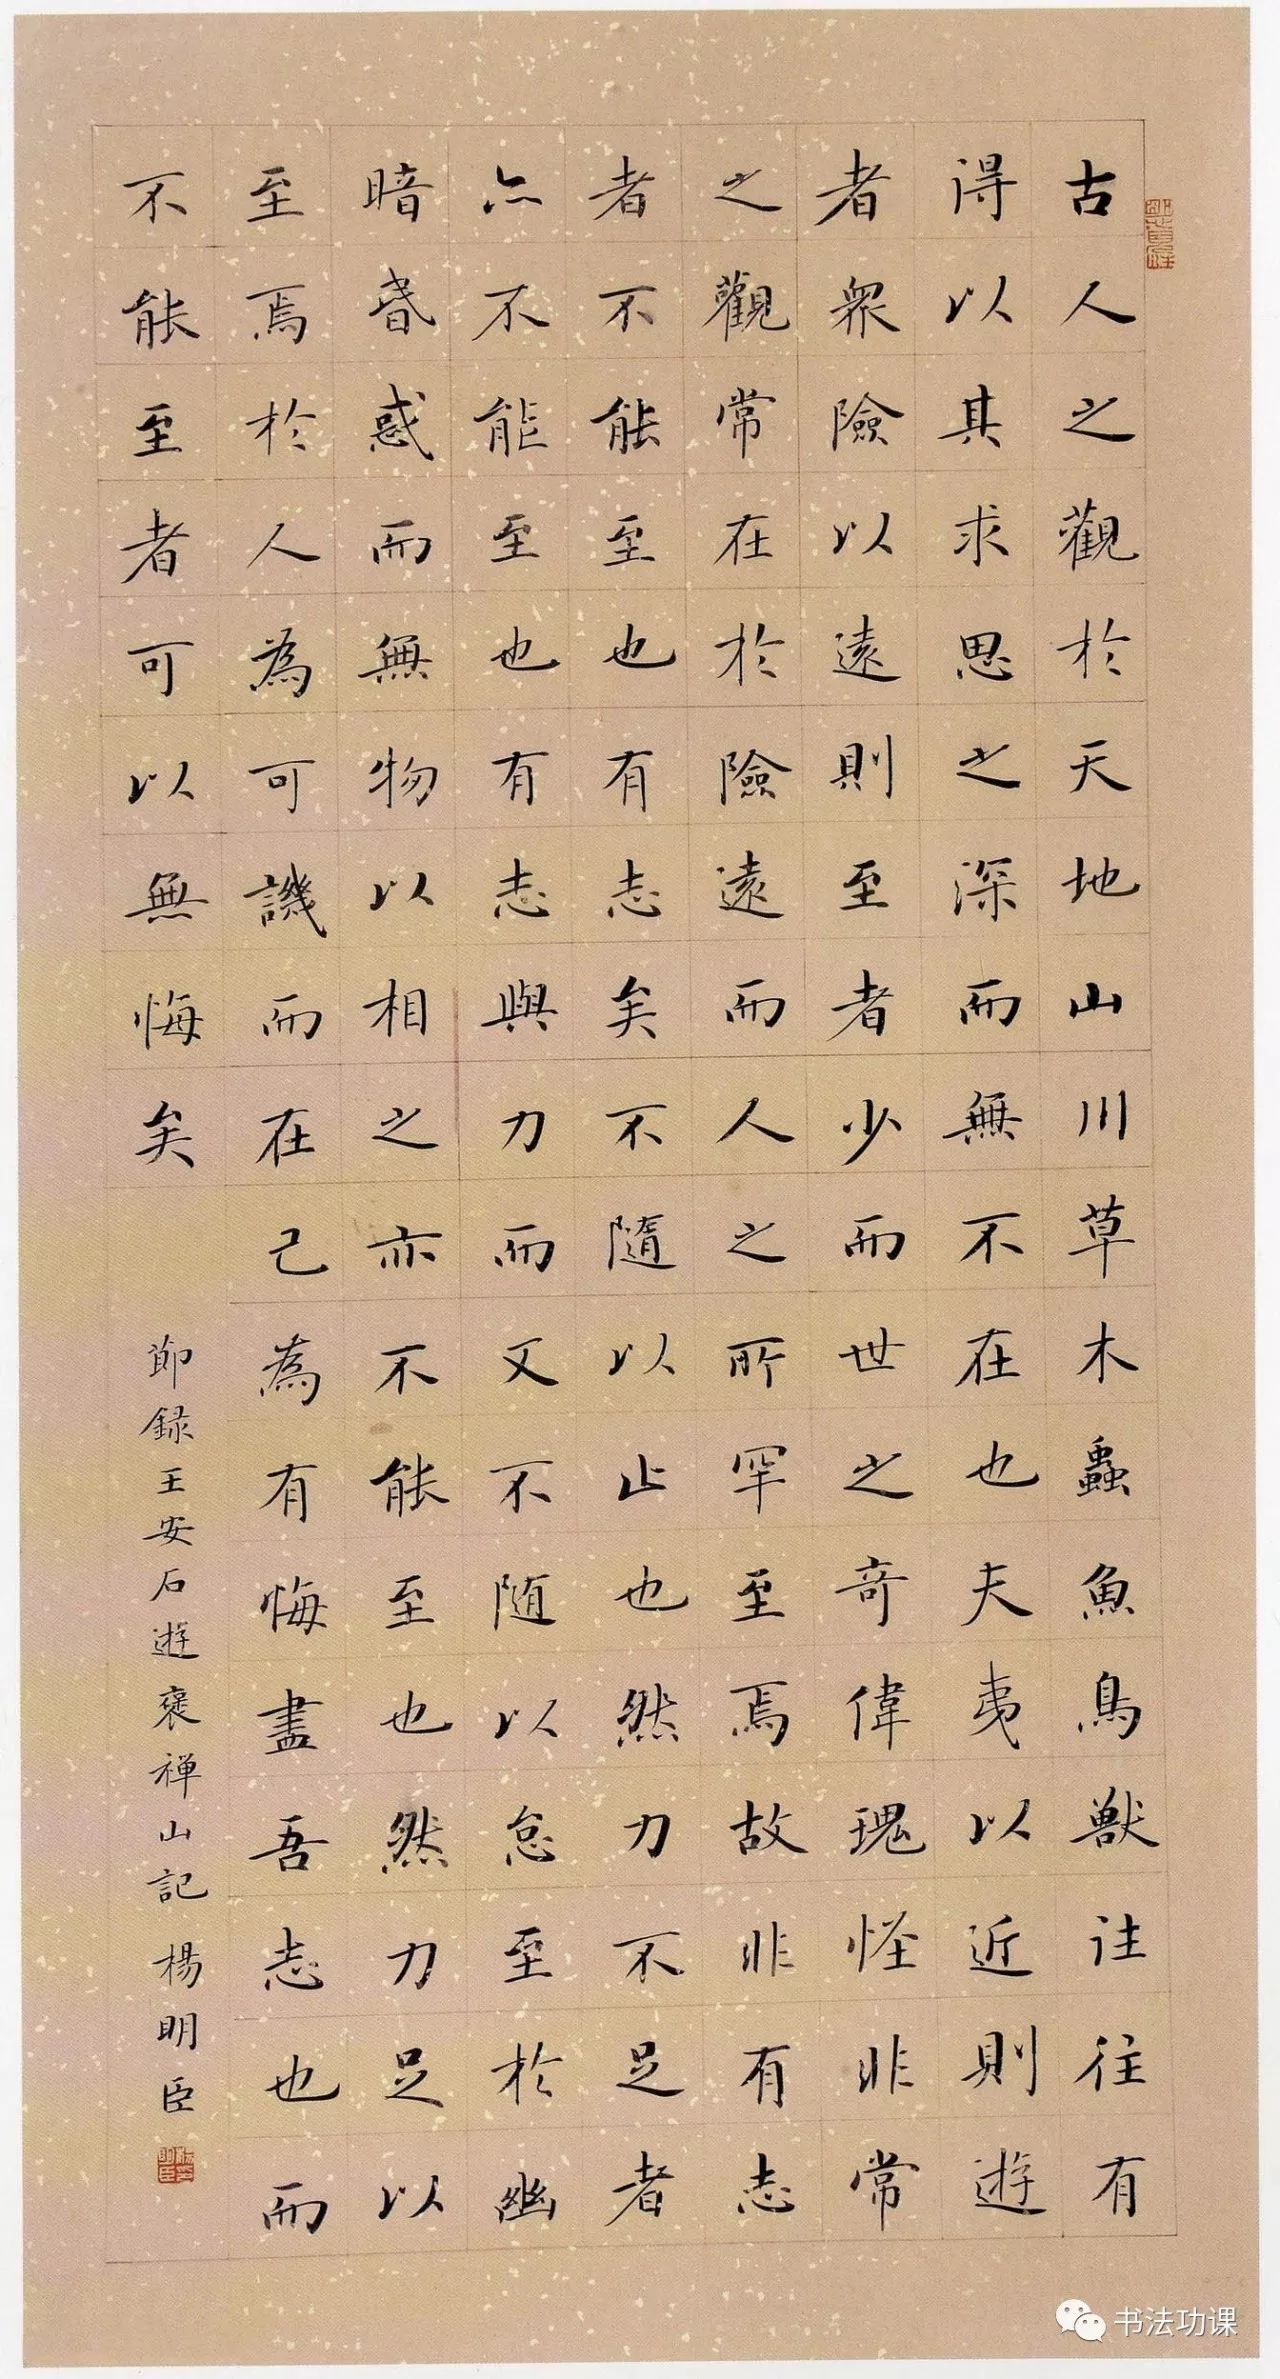 古人之觀於天地山川草木蟲魚鳥獸往往有
得以其求思之深而無不在也夫夷以近則遊
者衆險以遠則至者少而世之奇偉瑰怪非常
之觀常在於險遠而人之所罕至焉故非有志
者不能至也有志矣不隨以止也然力不足者
亦不能至也有志與力而又不随以怠至於幽
暗昏惑而無物以相之亦不能至也然力足以
至焉於人為可譏而在己為有悔盡吾志也而
不能至者可以無悔矣
節録王安石遊褒禅山記楊明臣
书法功课